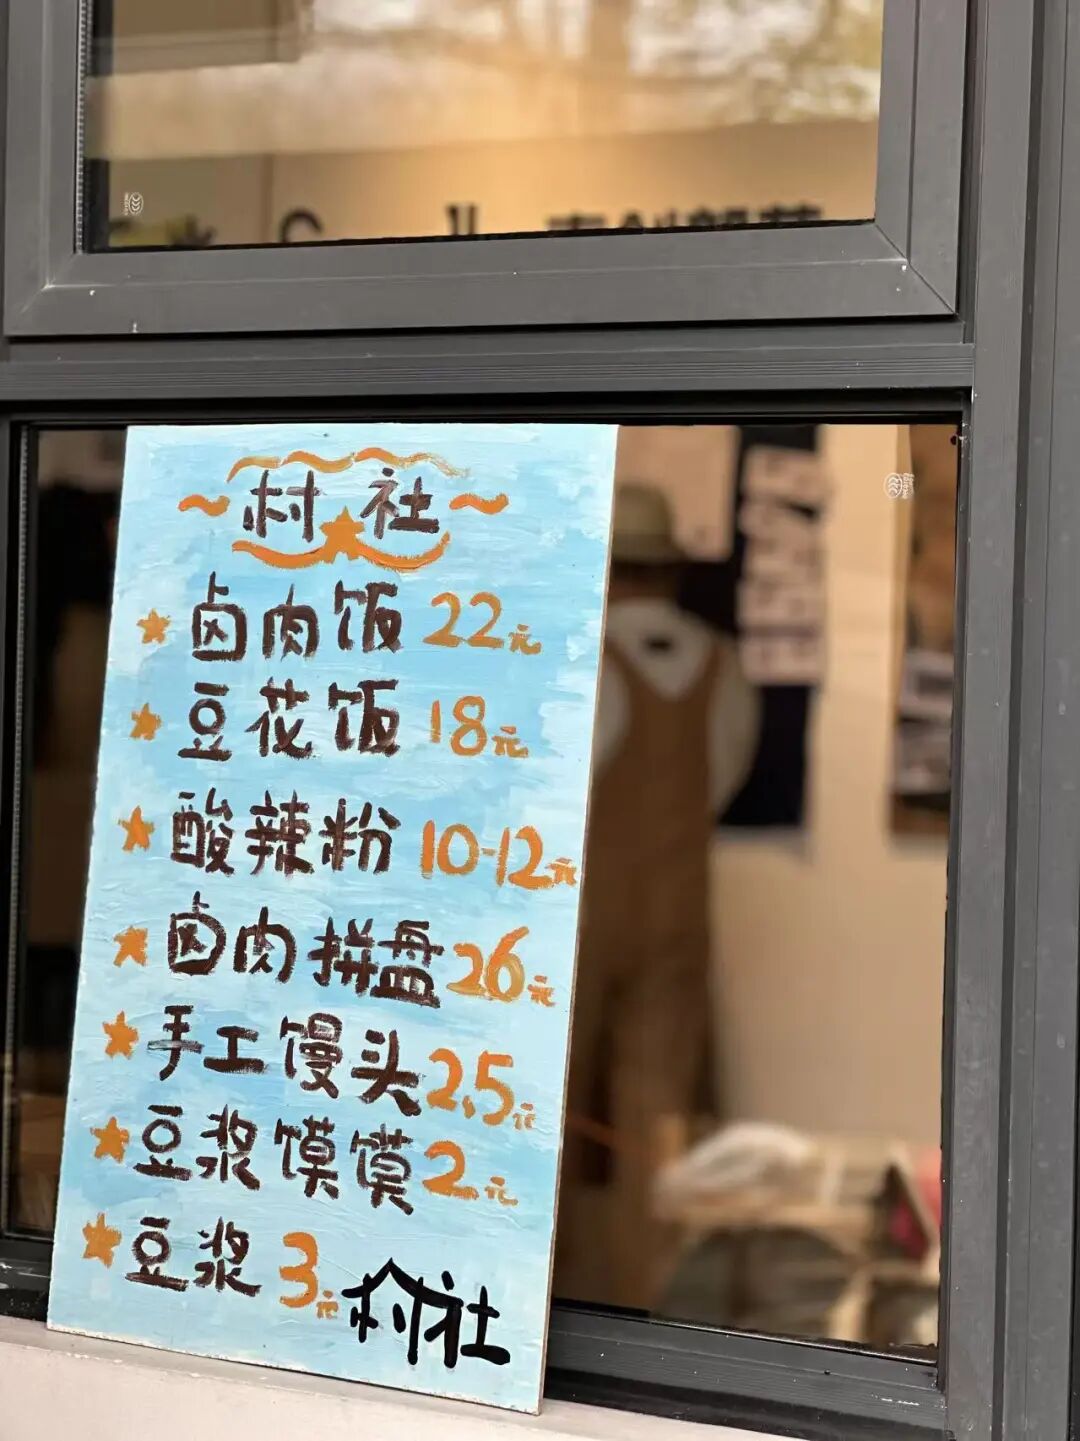 村社
卤肉饭 22元
豆花饭 18元
酸辣粉 10-12元
卤肉拼盘 26元
手工馒头 2.5元
豆浆馍馍 2元
豆浆 3元
村社